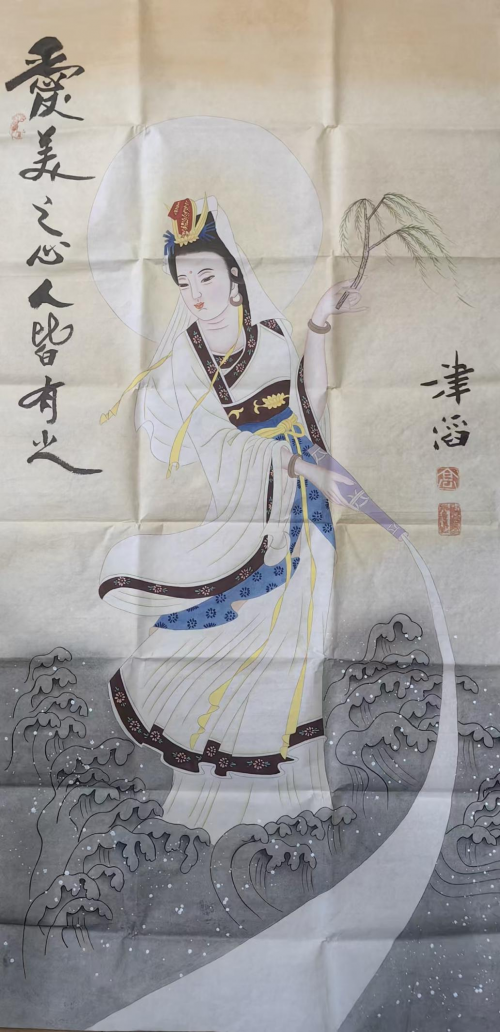 愛美之心人皆有之
津滔